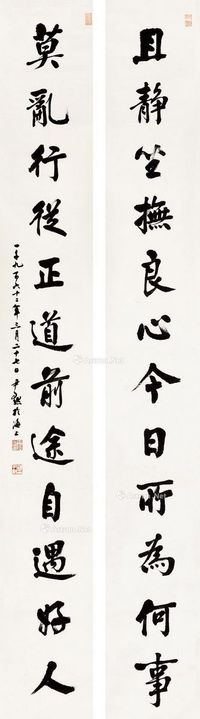 且静坐撫良心今日所為何事
莫亂行從正道前途自遇好人
一千九百六十二年三月二十七日尹默於海上